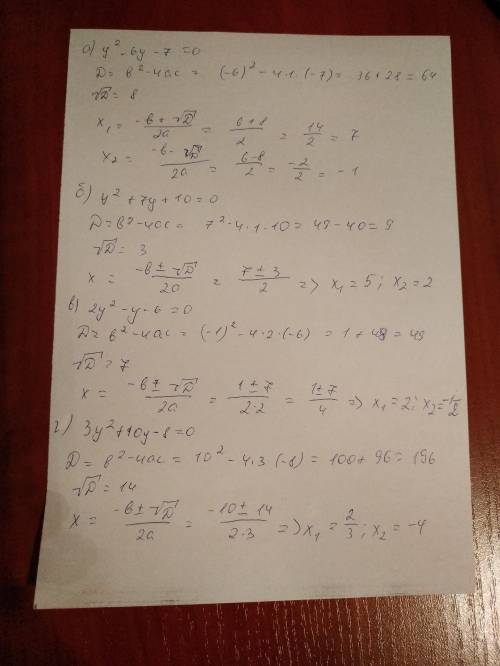 а) y² - 6y - 7 = 0
D = b² - 4ac = (-6)² - 4·1·(-7) = 36 + 28 = 64
√D = 8
x₁ = (-b + √D)/2a = (6 + 8)/2 = 14/2 = 7
x₂ = (-b - √D)/2a = (6 - 8)/2 = -2/2 = -1
б) y² + 7y + 10 = 0
D = b² - 4ac = 7² - 4·1·10 = 49 - 40 = 9
√D = 3
x = (-b ± √D)/2a = (7 ± 3)/2 => x₁ = 5; x₂ = 2
в) 2y² - y - 6 = 0
D = b² - 4ac = (-1)² - 4·2·(-6) = 1 + 48 = 49
√D = 7
x = (-b ± √D)/2a = (1 ± 7)/2·2 = (1 ± 7)/4 => x₁ = 2; x₂ =
г) 3y² + 10y - 8 = 0
D = b² - 4ac = 10² - 4·3·(-8) = 100 + 96 = 196
√D = 14
x = (-b ± √D)/2a = (-10 ± 14)/2·3 => x₁ = 2/3; x₂ = -4